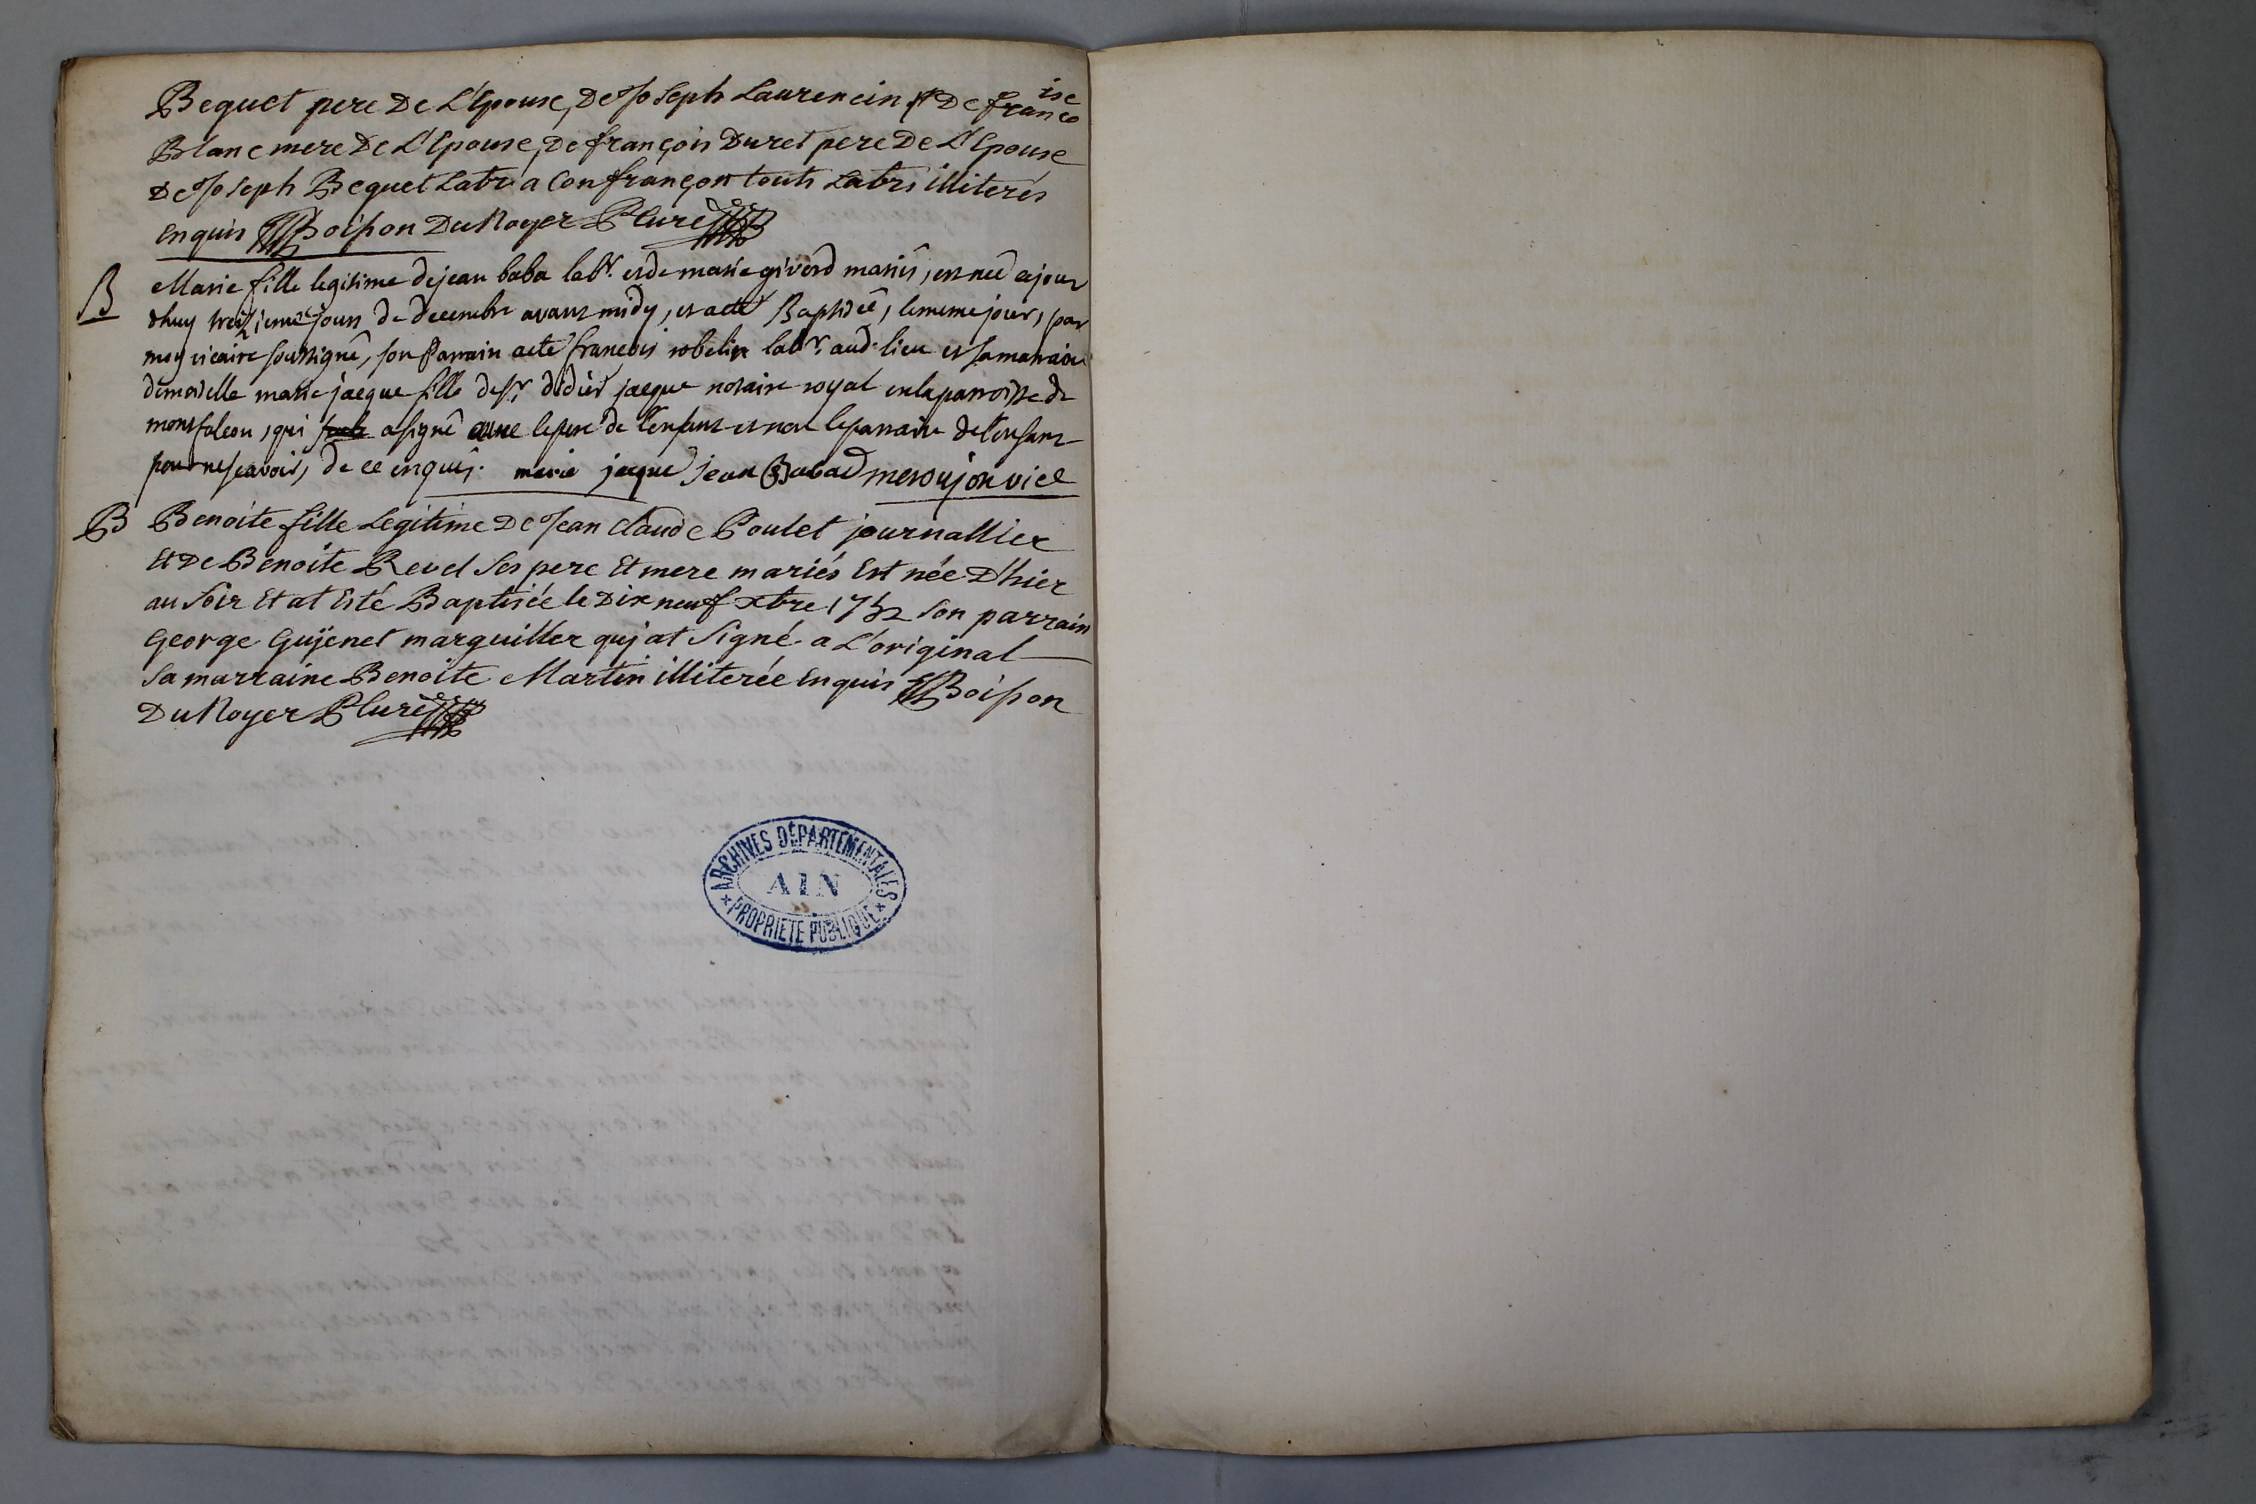 Bequet pere De L'Epouse, De Joseph Laurencin & De francoise
Blanc mere De L'Epouse, De françois Duret pere De L'Epouse
De Joseph Bequet Labr. a Confrançon touts Labrs illiterés
Enquis Boisson DuNoyer P Curé
B
Marie fille legitime de jean baba labr. et de marie giverd mariés, est neé ajour
dhuy treizieme jour de decembre avant midy, et a eté Baptiseé, le meme jour, par
moy vicaire soussigné, son Parrain a eté francois robelin labr. aud. lieu et sa marraine
demoiselle marie jacque fille de sr. didier jacque notaire royal en la parroisse de
montfalcon, qui a signé avec le pere de l'enfant et non le parrain de l'enfant
pour ne scavoir, de ce enquis. marie jacque Jean Babad meroujon vice
B
Benoite fille Legitime De Jean Claude Poulet journallier
Et De Benoite Revel Ses pere Et mere mariés Est née D'hier
au Soir Et at Esté Baptisée le Dix neuf xbre 1752 Son parrain
George Guÿenet marguiller quj at Signé a L'original
Sa marraine Benoite Martin illiterée Enquis Boisson
DuNoyer P Curé
ARCHIVES DÉPARTEMENTALES
AIN
PROPRIETE PUBLIQUE